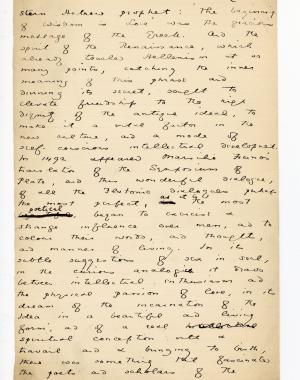 stern Hebrew prophet: The beginning
of Wisdom is Love was the gracious
message of the Greek. And the
spirit of the Renaissance, which
already touched Hellenism at so
many points, catching the inner
meaning of this phrase and
divining its secret, sought to
elevate friendship to the high
dignity of the antique ideal, to
make it a vital factor in the
new culture, and a mode of
self-conscious intellectual development.
In 1492 appeared Marsilio Ficino's
translation of the Symposium of
Plato, and this wonderful dialogue,
of all the Platonic dialogues perhaps
the most perfect, as it is the most
poetical began to exercise a
strange influence over men, and to
colour their words, and thoughts,
and manner of living. In its
subtle suggestions of sex in soul,
in the curious analogies it draws
between intellectual enthusiasm and
the physical passion of love, in its
dream of the incarnation of the
Idea in a beautiful and living
form, and of a real
spiritual conception with a
travail and a bringing to birth,
there was something that fascinated
the poets and scholars of the